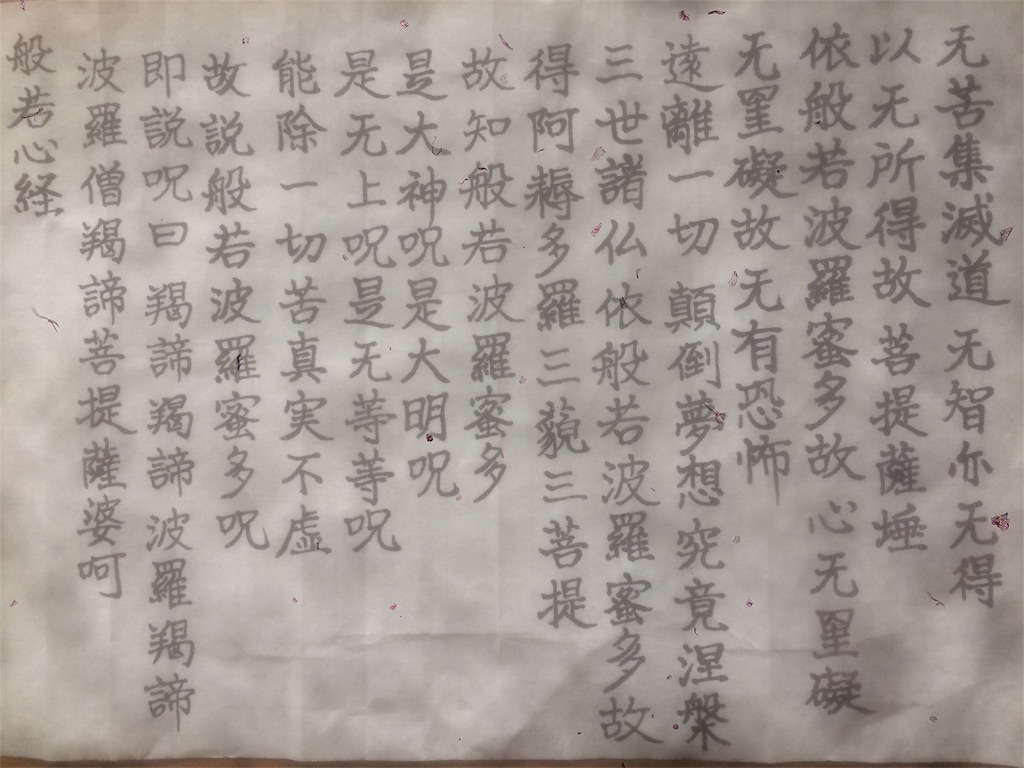 无苦集滅道 无智亦无得
以无所得故 菩提薩埵
依般若波羅蜜多故心无罣礙
无罣礙故无有恐怖
遠離一切 顛倒夢想究竟涅槃
三世諸仏依般若波羅蜜多故
得阿耨多羅三藐三菩提
故知般若波羅蜜多
是大神呪是大明呪
是无上呪是无等等呪
能除一切苦真実不虚
故説般若波羅蜜多呪
即説呪曰 羯諦羯諦波羅羯諦
波羅僧羯諦菩提薩婆呵
般若心経